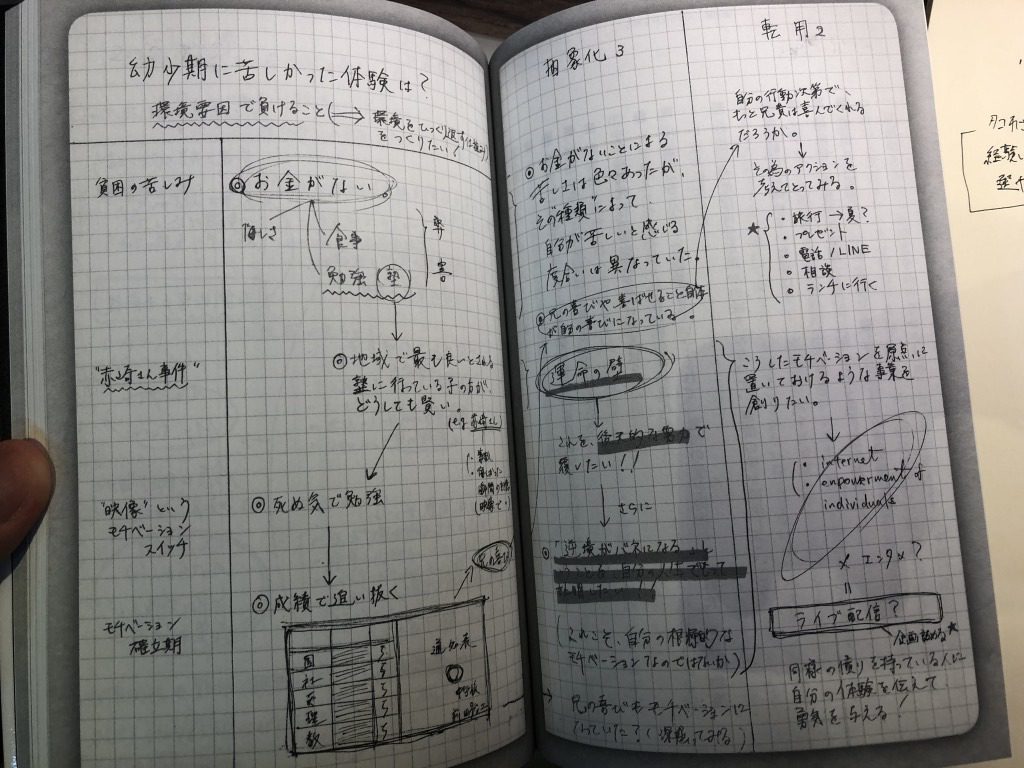 幼少期に苦しかった体験は?
環境要因で負けること
環境を
をつくりたい!
貧困の苦しみ
◎お金がない
悔しさ
食事
勉強(塾)
弊
害
"赤崎さん事件"
◎地域で最も良いとされる
塾に行っている子の方が、
どうしても賢い。
"映像"という
モチベーション
スイッチ
◎死ぬ気で勉強
モチベーション
確立期
◎成績で追い抜く
国
社
英
理
数
5
5
5
5
5
通知表
抽象化3
◎お金がないことによる
苦しさは色々あったが、
その"種類"によって
自分が苦しいと感じる
度合いは異なっていた。
◎兄の喜びや喜ばせること自体
が自分の喜びになっている。
運命の
これを、後天的な努力で
覆したい!!
さらに
◎「逆境がバネになる」
(これこそ、自分の根源的な
モチベーションなのではないか)
→兄の喜びもモチベーションに
なっていた?(深掘ってみる)
転用2
自分の行動次第で、
もっと兄貴は喜んでくれる
だろうか。
その為のアクションを
考えてとってみる。
★
・旅行→夏?
・プレゼント
・電話/LINE
・相談
・ランチに行く
こうしたモチベーションを原点に
置いておけるような事業を
創りたい。
・internet
・enpowerment of
individuals
× エンタメ?
=
ライブ配信?
企画詰める★
同様の憤りを持っている人に
自分の体験を伝えて
勇気を与える!